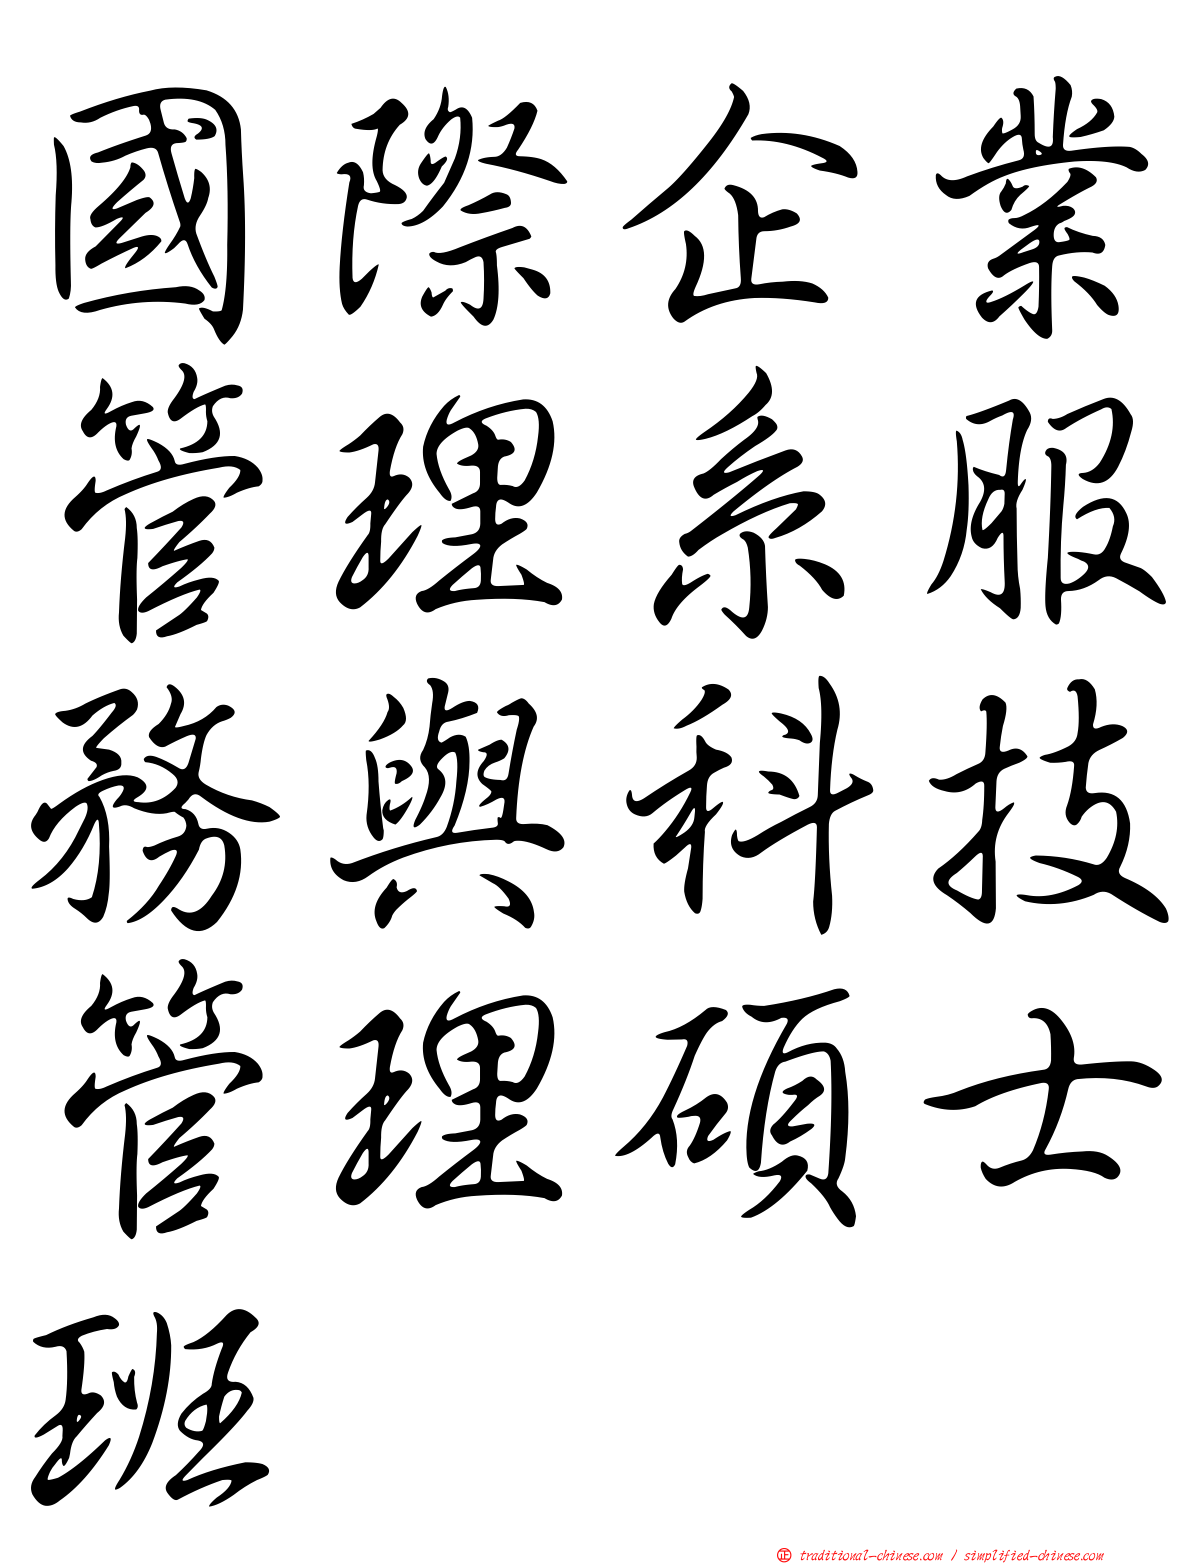 國際企業
管理系服
務與科技
管理碩士
班
正 traditional-chinese.com / simplified-chinese.com